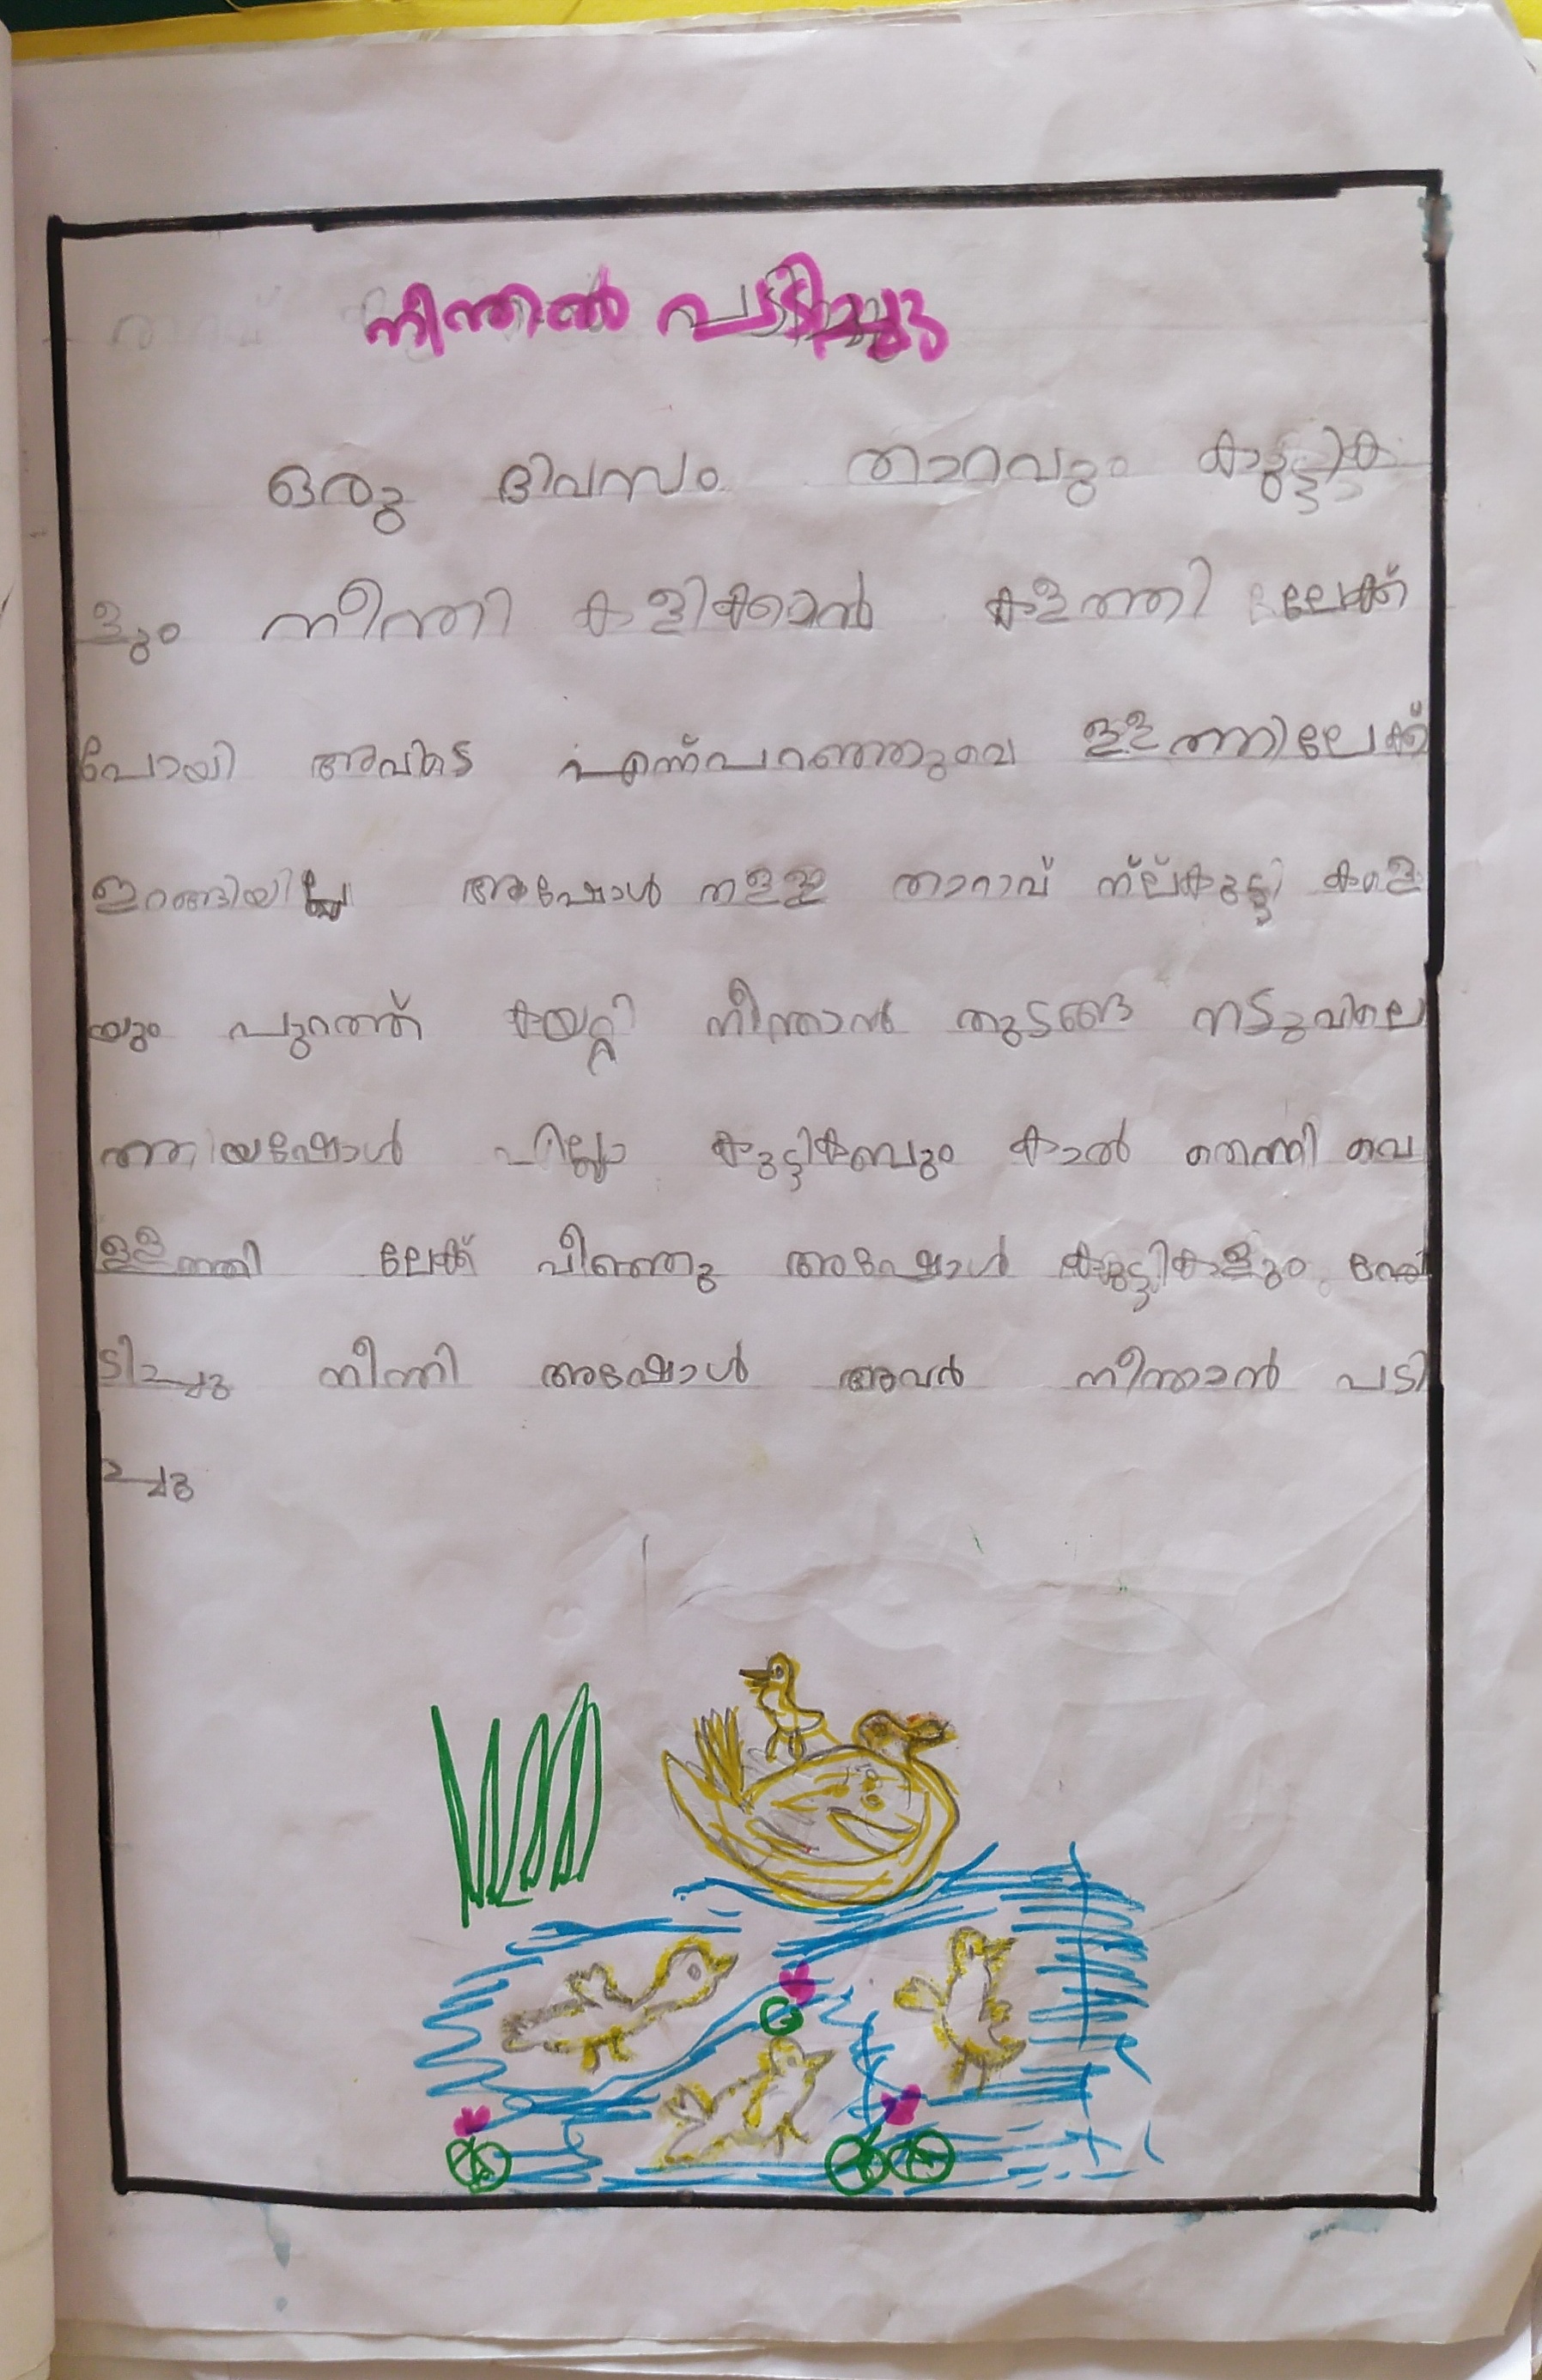 നീന്തൽ പടിച്ചു
ഒരു ദിവസം താറവും കുട്ടിക
ളും നീന്തി കളിക്കാൻ കുളത്തി ലേക്ക്
പോയി അവിടെ എന്ന്പറഞ്ഞുവെ ള്ളത്തിലേക്ക്
ഇറങ്ങിയില്ല അപ്പോൾ തള്ള താറാവ് കളെ
യും പുറത്ത് കയറ്റി നീന്താൻ തുടങ്ങി നടുവിലെ
ത്തിയപ്പോൾ എല്ലാ കുട്ടികളും കാൽ തെന്നി വെ
ള്ളത്തി ലേക്ക് വീഞ്ഞു അപ്പോൾ കുട്ടികളും പേ
ടിച്ചു നീന്തി അപ്പോൾ അവർ നീന്താൻ പടി
ച്ചു